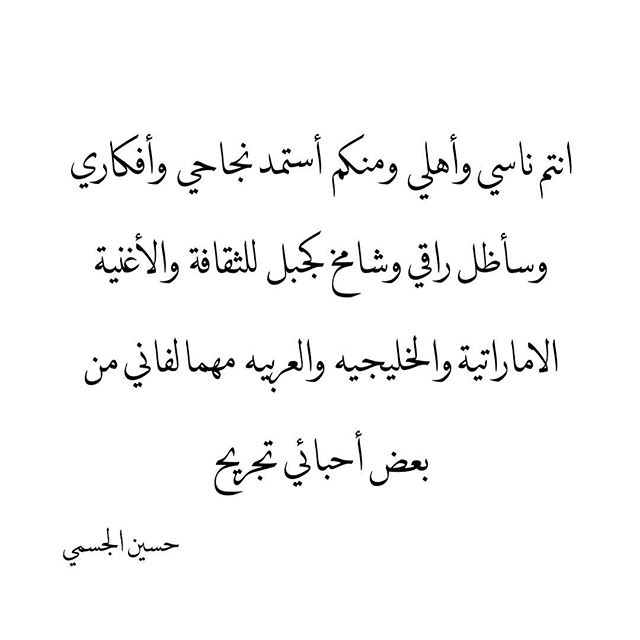 انتم ناسي وأهلي ومنكم أستمد نجاحي وأفكاري
وسأظل راقي وشامخ كجبل للثقافة والأغنية
الاماراتية والخليجيه والعربيه مهما لفاني من
بعض أحبائي تجريح
حسين الجسمي